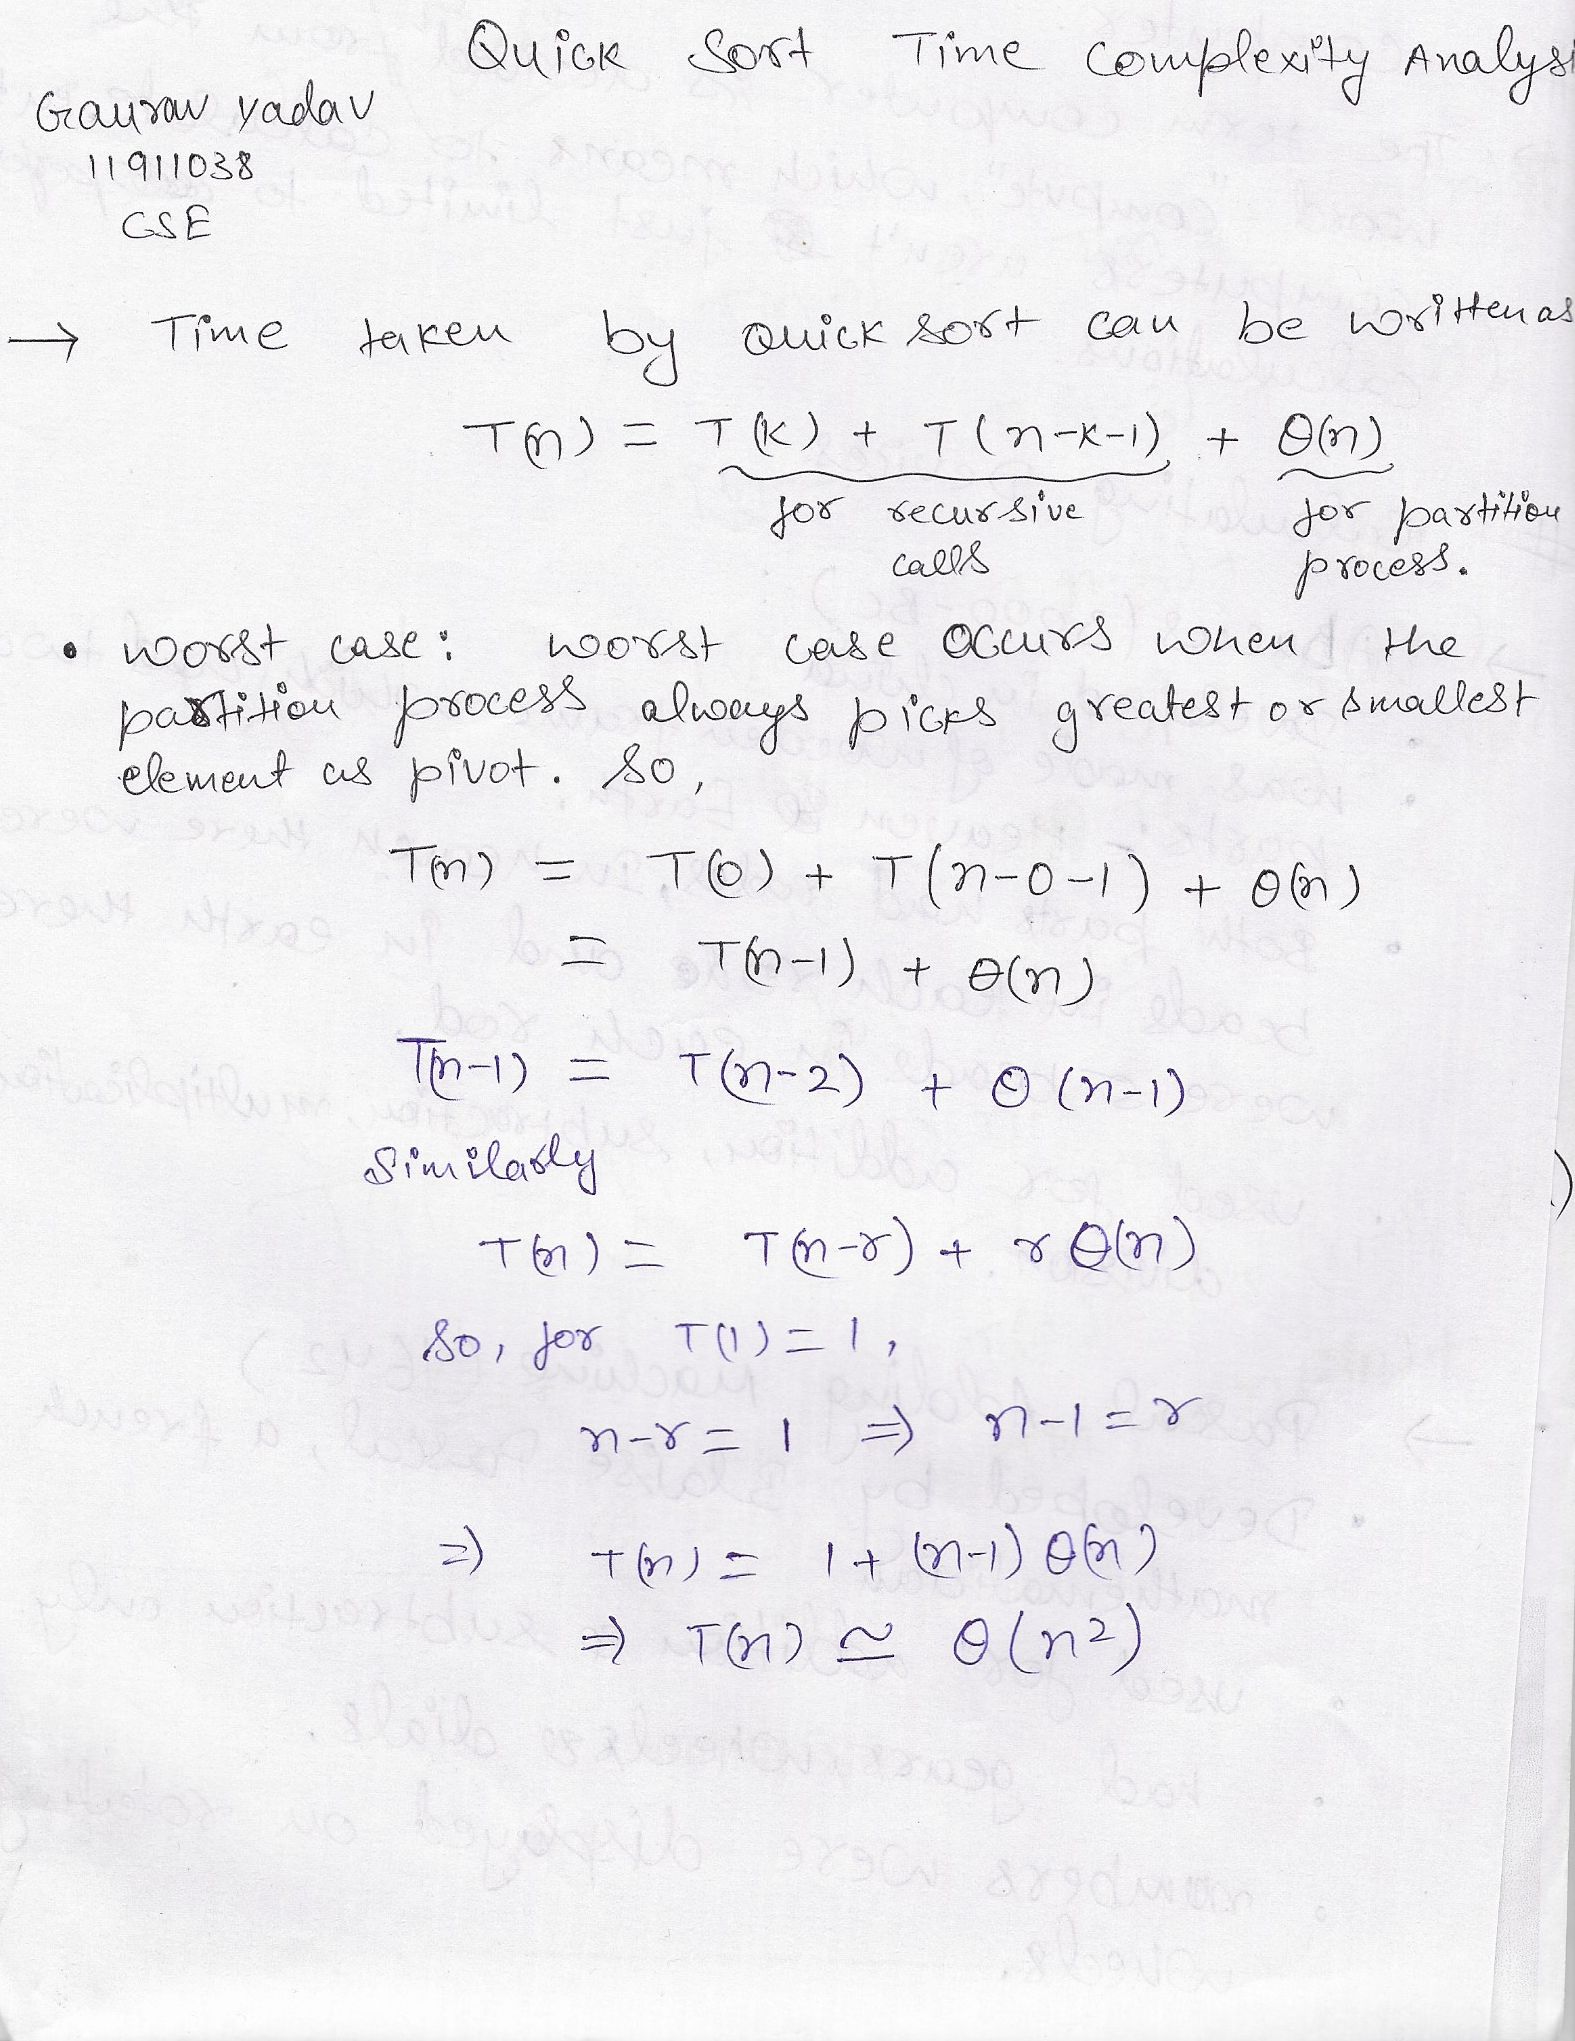 Quick Sort Time Complexity Analysi
Gaurav Yadav
11911038
CSE
→ Time taken by Quick sort can be written as
T(n) = T(k) + T(n-k-1) + θ(n)
for recursive for partition
calls process.
• worst case: worst case occurs when the
partition process always picks greatest or smallest
element as pivot. So,
T(n) = T(0) + T(n-0-1) + θ(n)
= T(n-1) + θ(n)
T(n-1) = T(n-2) + θ(n-1)
Similarly
T(n) = T(n-r) + rθ(n)
So, for T(1) = 1,
n-r = 1 ⇒ n-1 = r
⇒ T(n) = 1 + (n-1) θ(n)
⇒ T(n) ≃ θ(n²)